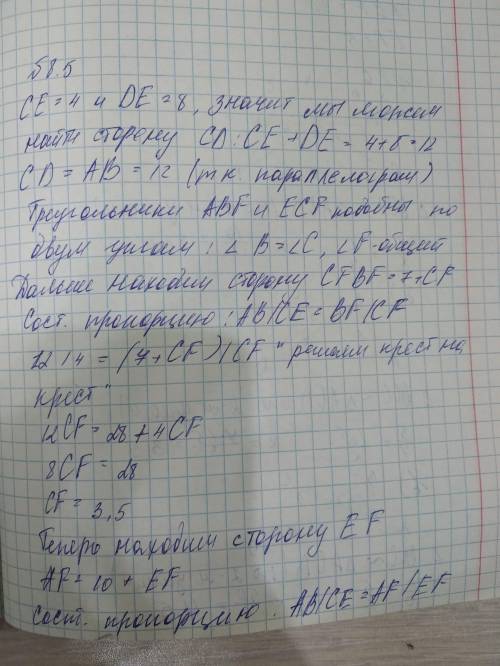 58.5
CE = 4 и DE = 8, значит мы можем
найти сторону CD: CE + DE = 4+8=12
CD = AB = 12 (т.к. параллелограм)
Треугольники ABF и ECF подобны по
двум углам: ∠B=∠C, ∠F-общий
Дальше находим сторону CF BF=7+CF
Сост. пропорцию: AB/CE = BF/CF
12/4 = (7+CF)/CF "решаем крест на
крест"
12CF = 28 + 4CF
8CF = 28
CF = 3,5
Теперь находим сторону EF
AF = 10 + EF
Сост. пропорцию: AB/CE = AF/EF